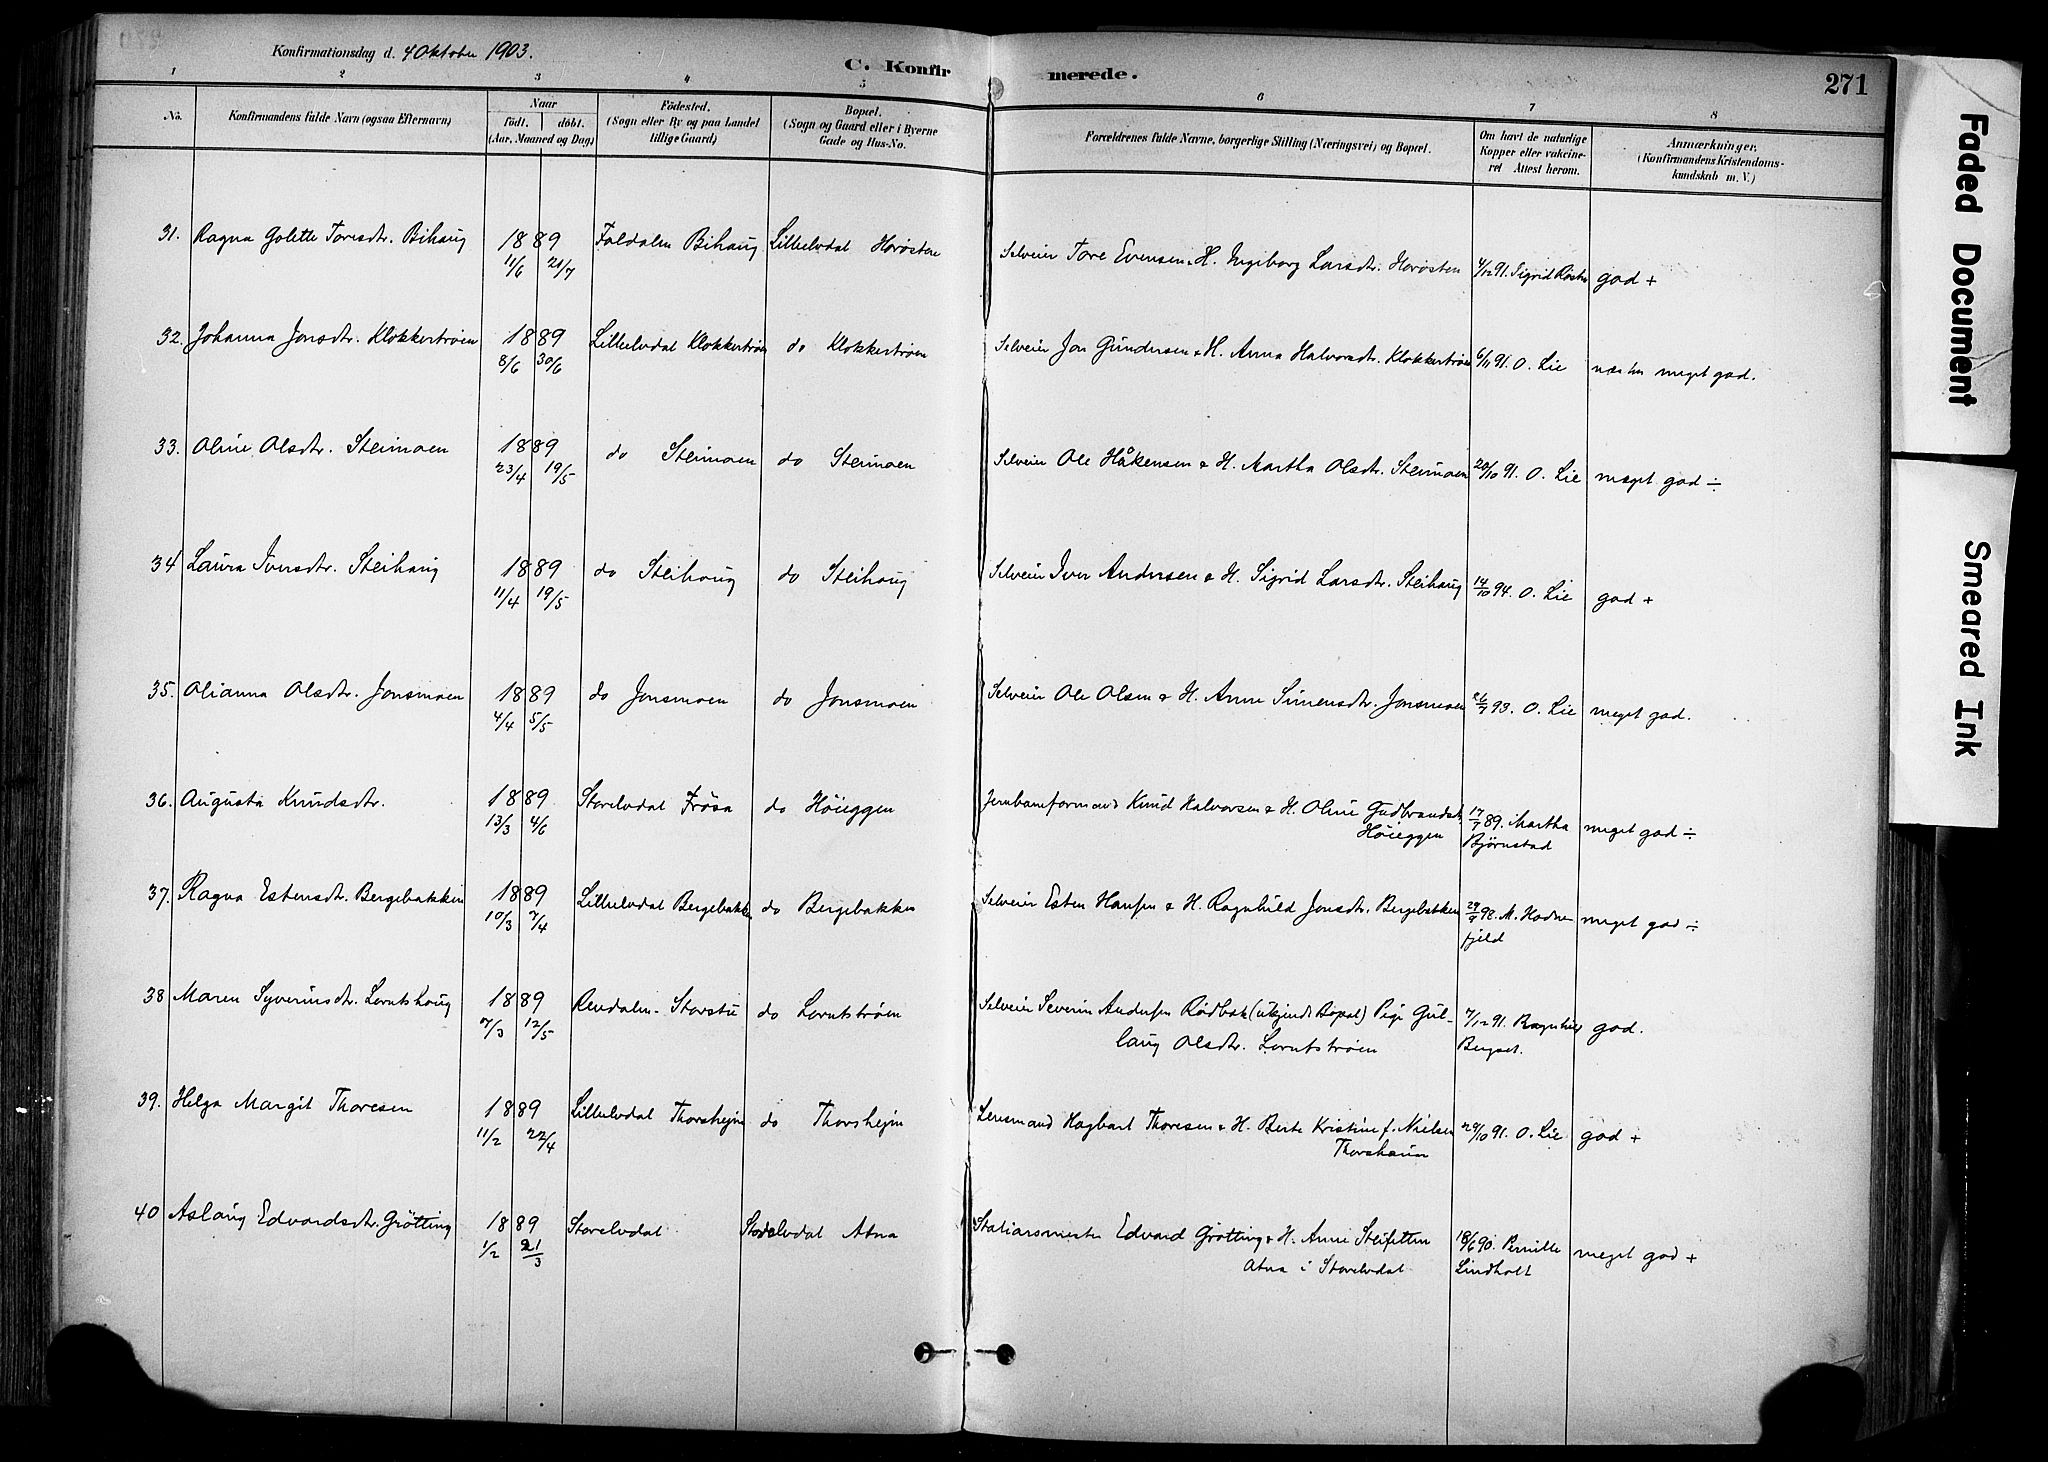 Konfirmationsdag d. 4 Oktober 1903.
C. Konfirmerede.
271
1 2 3 4 5 6 7 8
No.
Konfirmandens fulde Navn (ogsaa Efternavn)
Naar
födt. döbt.
(Aar, Maaned og Dag)
Födested.
(Sogn eller By og paa Landet
tillige Gaard)
Bopæl.
(Sogn og Gaard eller i Byerne
Gade og Hus-No.
Forældrenes fulde Navne, borgerlige Stilling (Næringsvei) og Bopæl.
Om havt de naturlige
Kopper eller vakcine-
ret Attest herom.
Anmærkninger.
(Konfirmandens Kristendoms-
kundskab m. V.)
31. Ragna Golette Toresdtr. Bihaug 1889 11/6 21/7 Foldalen Bihaug Lilleelvdal Horösten Selveier Tore Evensen & H. Ingeborg Larsdtr. Horösten 4/12 91. Sigrid god +
32. Johanna Jonsdtr. Klokkertröen 1889 8/6 30/6 Lilleelvdal Klokkertröen do Klokkertröen Selveier Jon Gundersen & H. Anna Halvorsdtr. Klokkertröen 6/11 91. O. Lie næsten meget god.
33. Oline Olsdtr. Steimoen 1889 23/4 19/5 do Steimoen do Steimoen Selveier Ole Håkensen & H. Martha Olsdtr. Steimoen 20/10 91. O. Lie meget god ÷
34 Laura Iversdtr. Steihaug 1889 11/4 19/5 do Steihaug do Steihaug Selveier Iver Andersen & H. Sigrid Larsdtr. Steihaug 14/10 94. O. Lie god +
35. Olianna Olsdtr. Jonsmoen 1889 4/4 5/5 do Jonsmoen do Jonsmoen Selveier Ole Olsen & H. Anne Simensdtr. Jonsmoen 26/7 93. O. Lie meget god.
36. Augusta Knudsdtr. 1889 13/3 4/6 Storelvdal Frösa do Höieggen Jernbaneformand Knud Halvorsen & H. Oline Gudbrandsd. 17/7 89. Martha meget god ÷
Höieggen Björnstad
37. Ragna Estensdtr. Bergebakken 1889 10/3 7/4 Lilleelvdal Bergebakken do Bergebakken Selveier Esten Hansen & H. Ragnhild Jonsdtr. Bergebakken 29/9 98. M. Hodne- meget god ÷
fjeld
38 Maren Syverinsdtr. Lorntshoug 1889 7/3 12/5 Rendalen - Storstu do Lorntströen Selveier Severin Andersen Rödbak (ubkjendt Bopæl) Pige Gul- 7/12 91. Ragnhild god.
laug Olsdtr. Lorntströen Bergset.
39. Helga Margit Thoresen 1889 11/2 22/4 Lilleelvdal Thorshejm do Thorshejm Lensmand Hagbart Thoresen & H. Berte Kristine f. Nielsen 29/10 91. O. Lie god +
Thorshaim
40 Aslaug Edvardsdtr. Grötting 1889 1/2 21/3 Storelvdal Storelvdal Atna Stationsmester Edvard Grötting & H. Anne Steifetten 18/6 90. Pernille meget god +
Atna i Storelvdal Lindholt
Faded Document
Smeared Ink